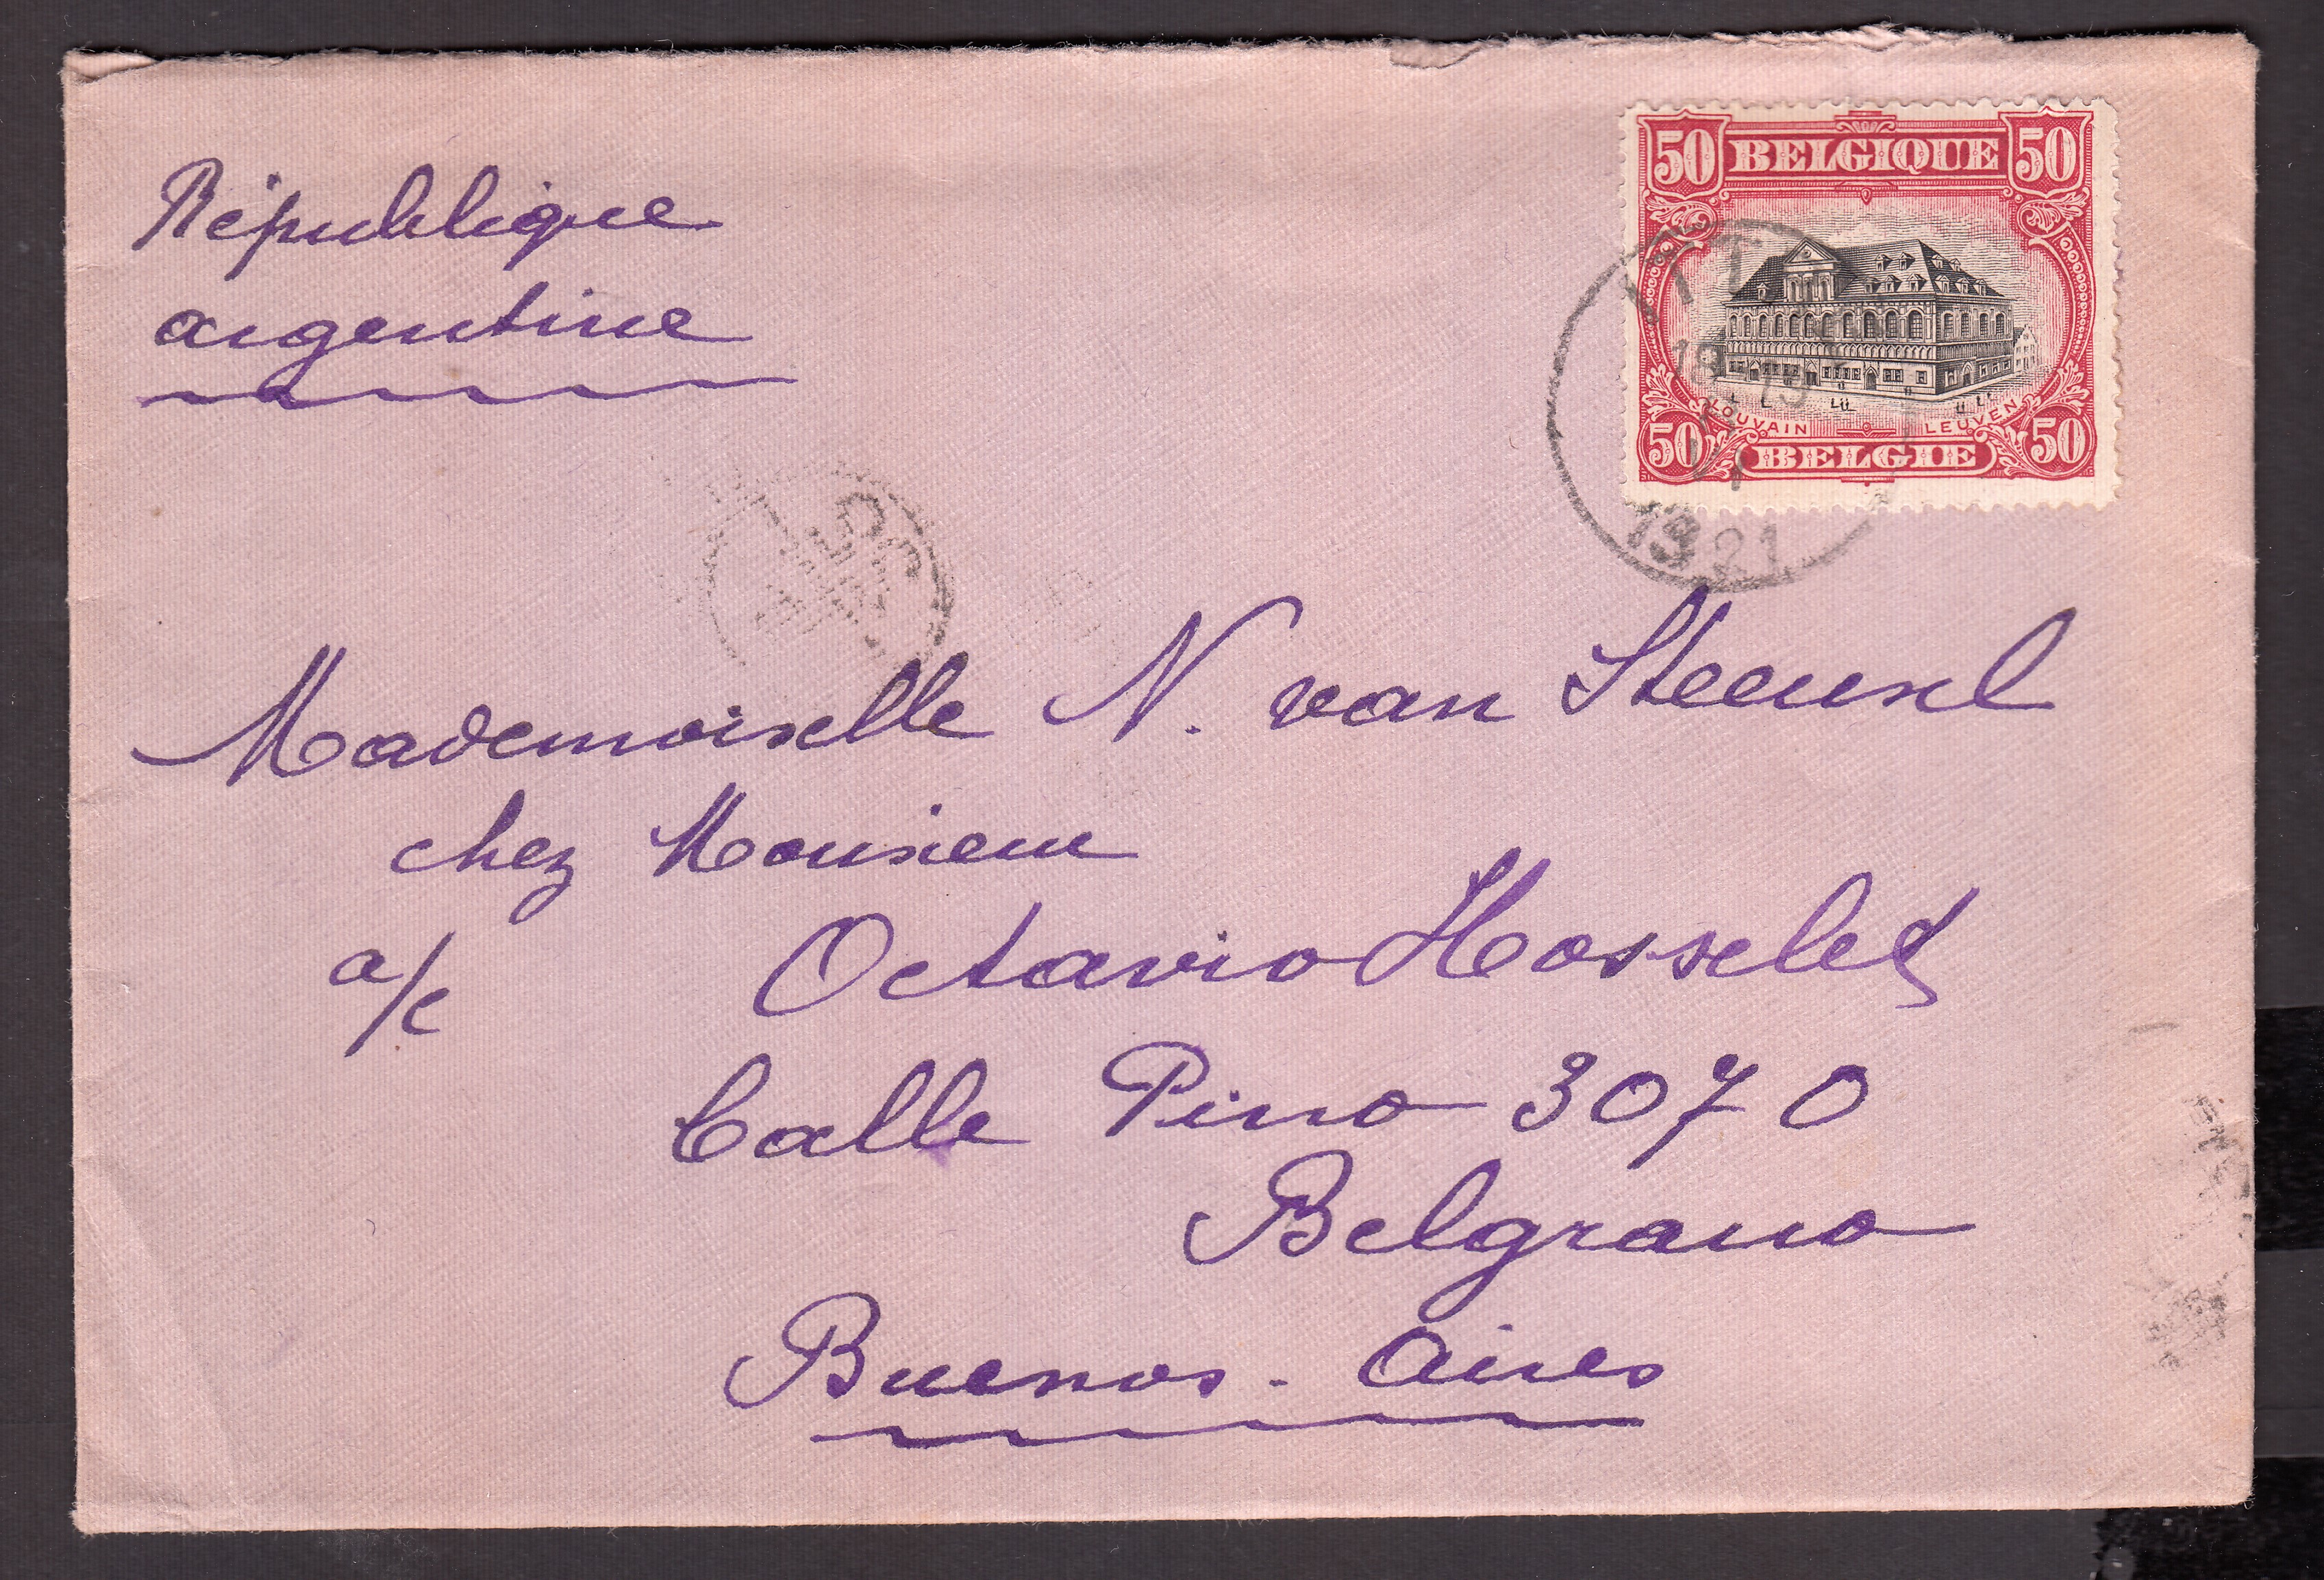 République
argentine
50 BELGIQUE 50
LOUVAIN LEUVEN
50 BELGIE 50
ITT
1921
Mademoiselle N. van Steensel
chez Monsieur
a/c Octavio Hosselet
Calle Pino 3070
Belgrano
Buenos-Aires